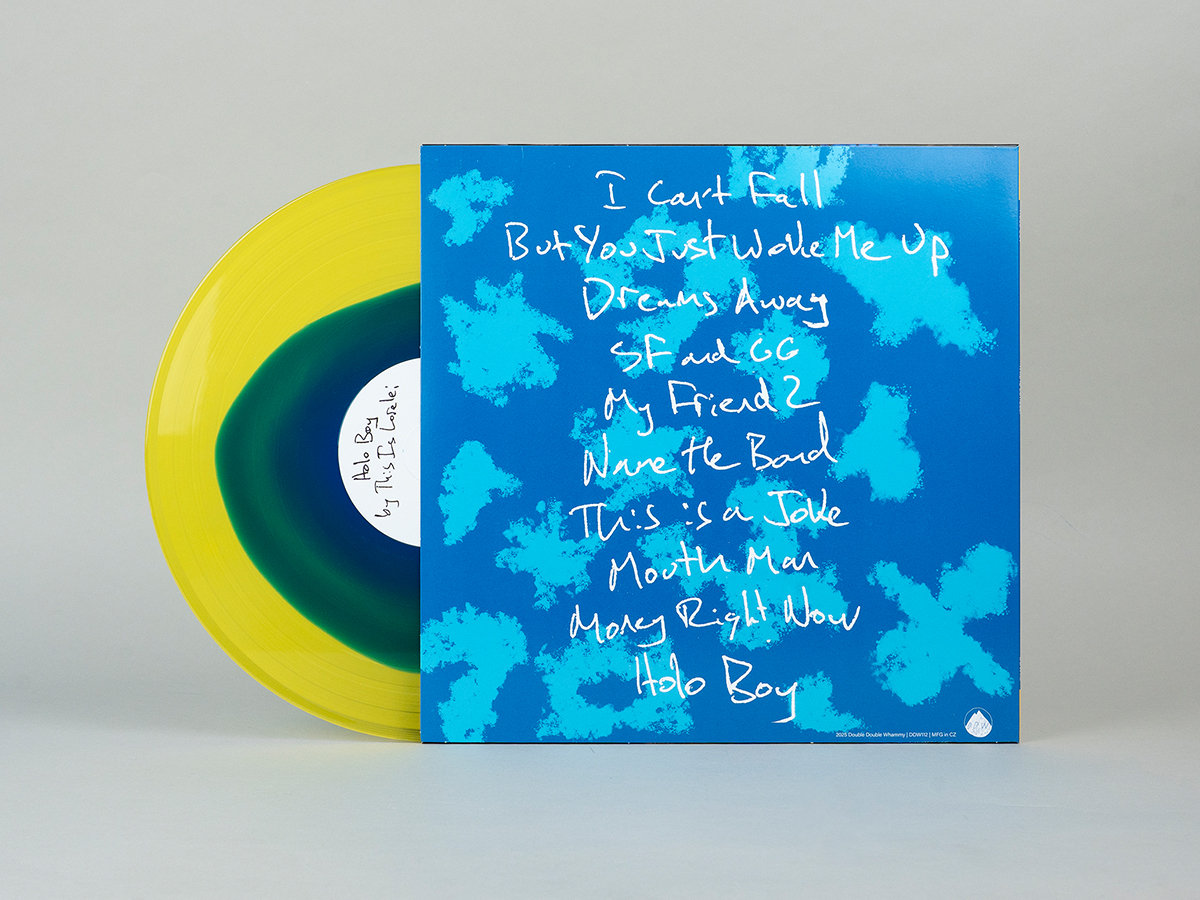 Holo Boy
by This Is Lorelei
I Can't Fall
But You Just Woke Me Up
Dreams Away
SF and GG
My Friend 2
Name the Band
This is a Joke
Mouth Man
Money Right Now
Holo Boy
2025 Double Double Whammy | DDW112 | MFG in CZ